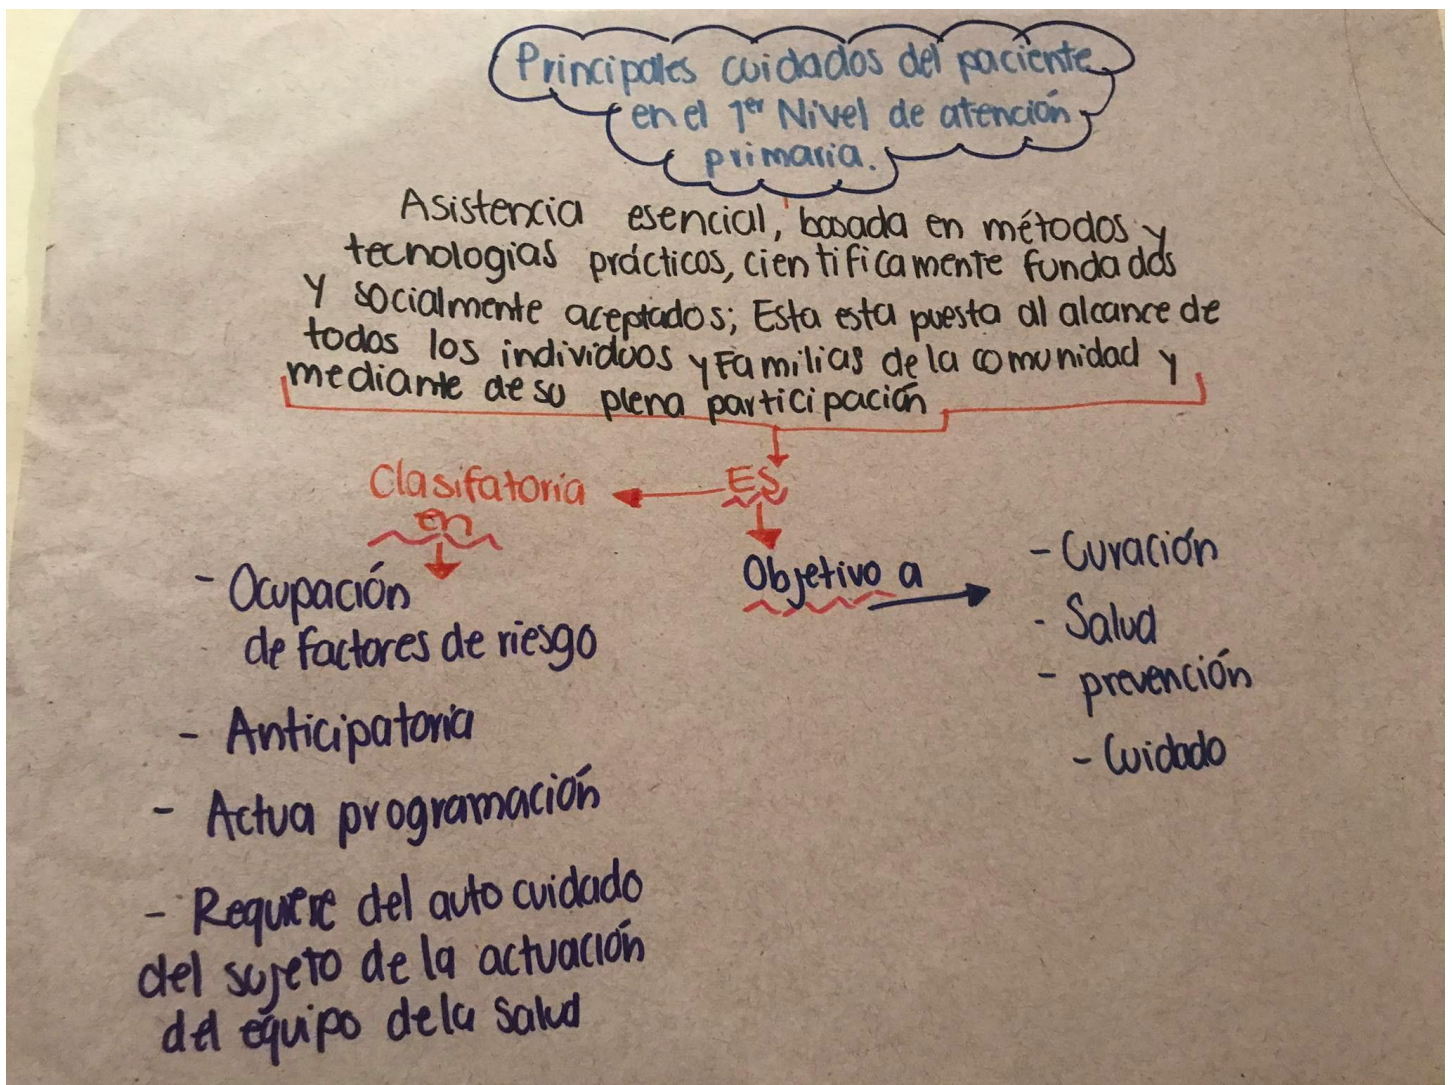 Principales cuidados del paciente
en el 1er Nivel de atención
primaria.
Asistencia esencial, basada en métodos y
tecnologias prácticos, cientificamente fundados
y socialmente aceptados; Esta esta puesta al alcance de
todos los individuos y Familias de la comunidad y
mediante de su plena participación
Clasifatoria
ES
en
Objetivo a
- Ocupación
de factores de riesgo
- Anticipatoria
- Actua programación
- Requiere del auto cuidado
del sujeto de la actuación
del equipo de la salud
- Curación
- Salud
- prevención
- Cuidado